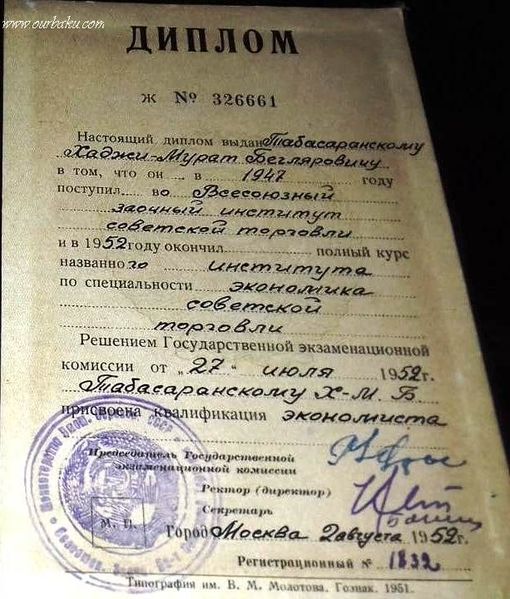 www.ourbaku.com
ДИПЛОМ
Ж № 326661
Настоящий диплом выдан Табасаранскому
Хаджи-Мурат Бегляровичу
в том, что он в 1947 году
поступил во Всесоюзный
заочный институт
советской торговли
и в 1952 году окончил полный курс
названного института
по специальности экономика
советской
торговли
Решением Государственной экзаменационной
комиссии от "27" июля 1952г.
Табасаранскому Х-М. Б.
присвоена квалификация экономиста
Председатель Государственной
экзаменационной комиссии
Ректор (директор)
Секретарь
М. П.
Город Москва 2 августа 1952г.
Регистрационный № 1832
Типография им. В. М. Молотова. Гознак. 1951.